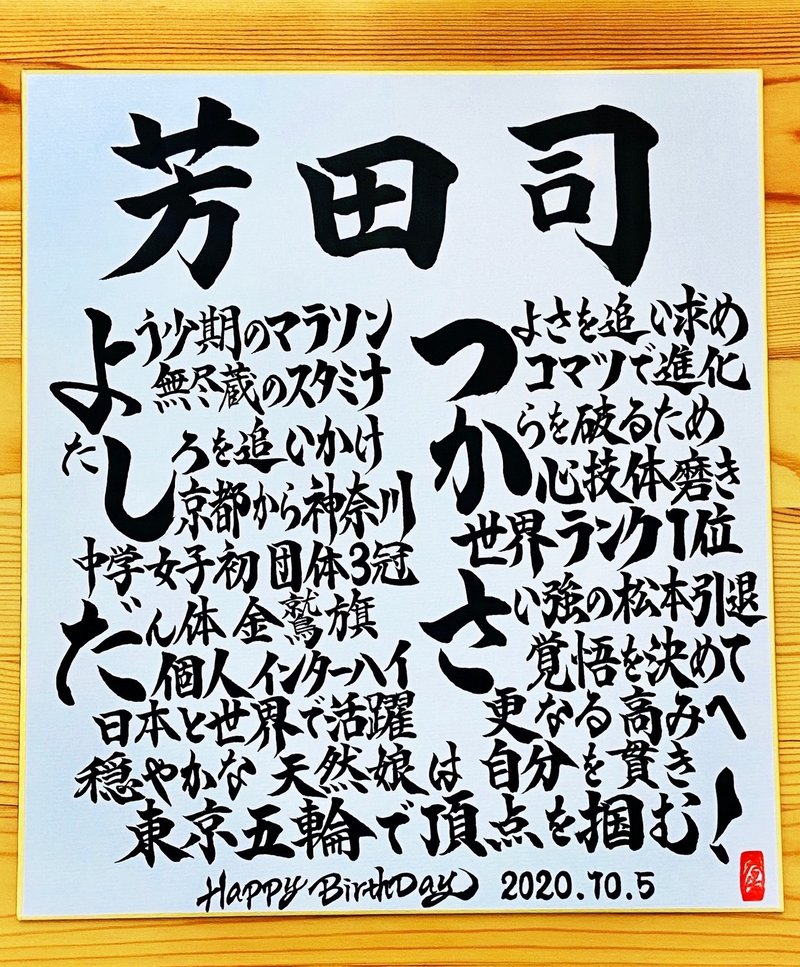 芳田司
よう少期のマラソン
無尽蔵のスタミナ
たしろを追いかけ
京都から神奈川
中学女子初 団体3冠
だん体 金鷲旗
個人 インターハイ
日本と世界で活躍
つよさを追い求め
コマツで進化
からを破るため
心技体磨き
世界ランク1位
さい強の松本引退
覚悟を決めて
更なる高みへ
穏やかな 天然娘は 自分を貫き
東京五輪で頂点を掴む!
Happy BirthDay 2020.10.5